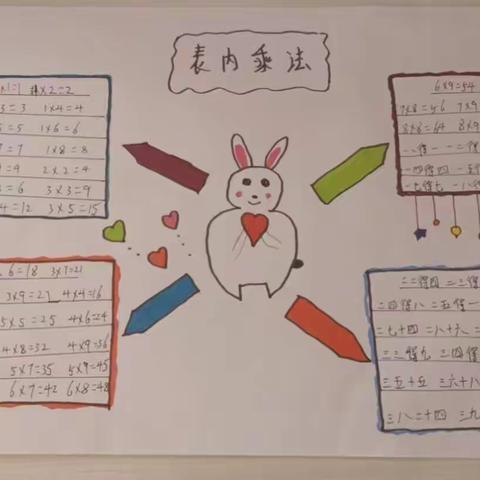 表内乘法
×1=1 ×2=2
3=3 1×4=4
=5 1×6=6
=7 1×8=8
=9 2×2=4
=6 3×3=9
4=12 3×5=15
6×9=54
7×8=56 7×9
8×8=64 8×9
一一得一 一二得
一四得四 一五
一七得七 一八得
6=18 3×7=21
3×9=27 4×4=16
5×5=25 4×6=24
4×8=32 4×9=36
5×7=35 5×9=45
6×7=42 6×8=48
二二得四 二三得
二四得八 二五得一
二七十四 二八十六 二
三三得九 三四得
三五十五 三六十八
三八二十四 三九